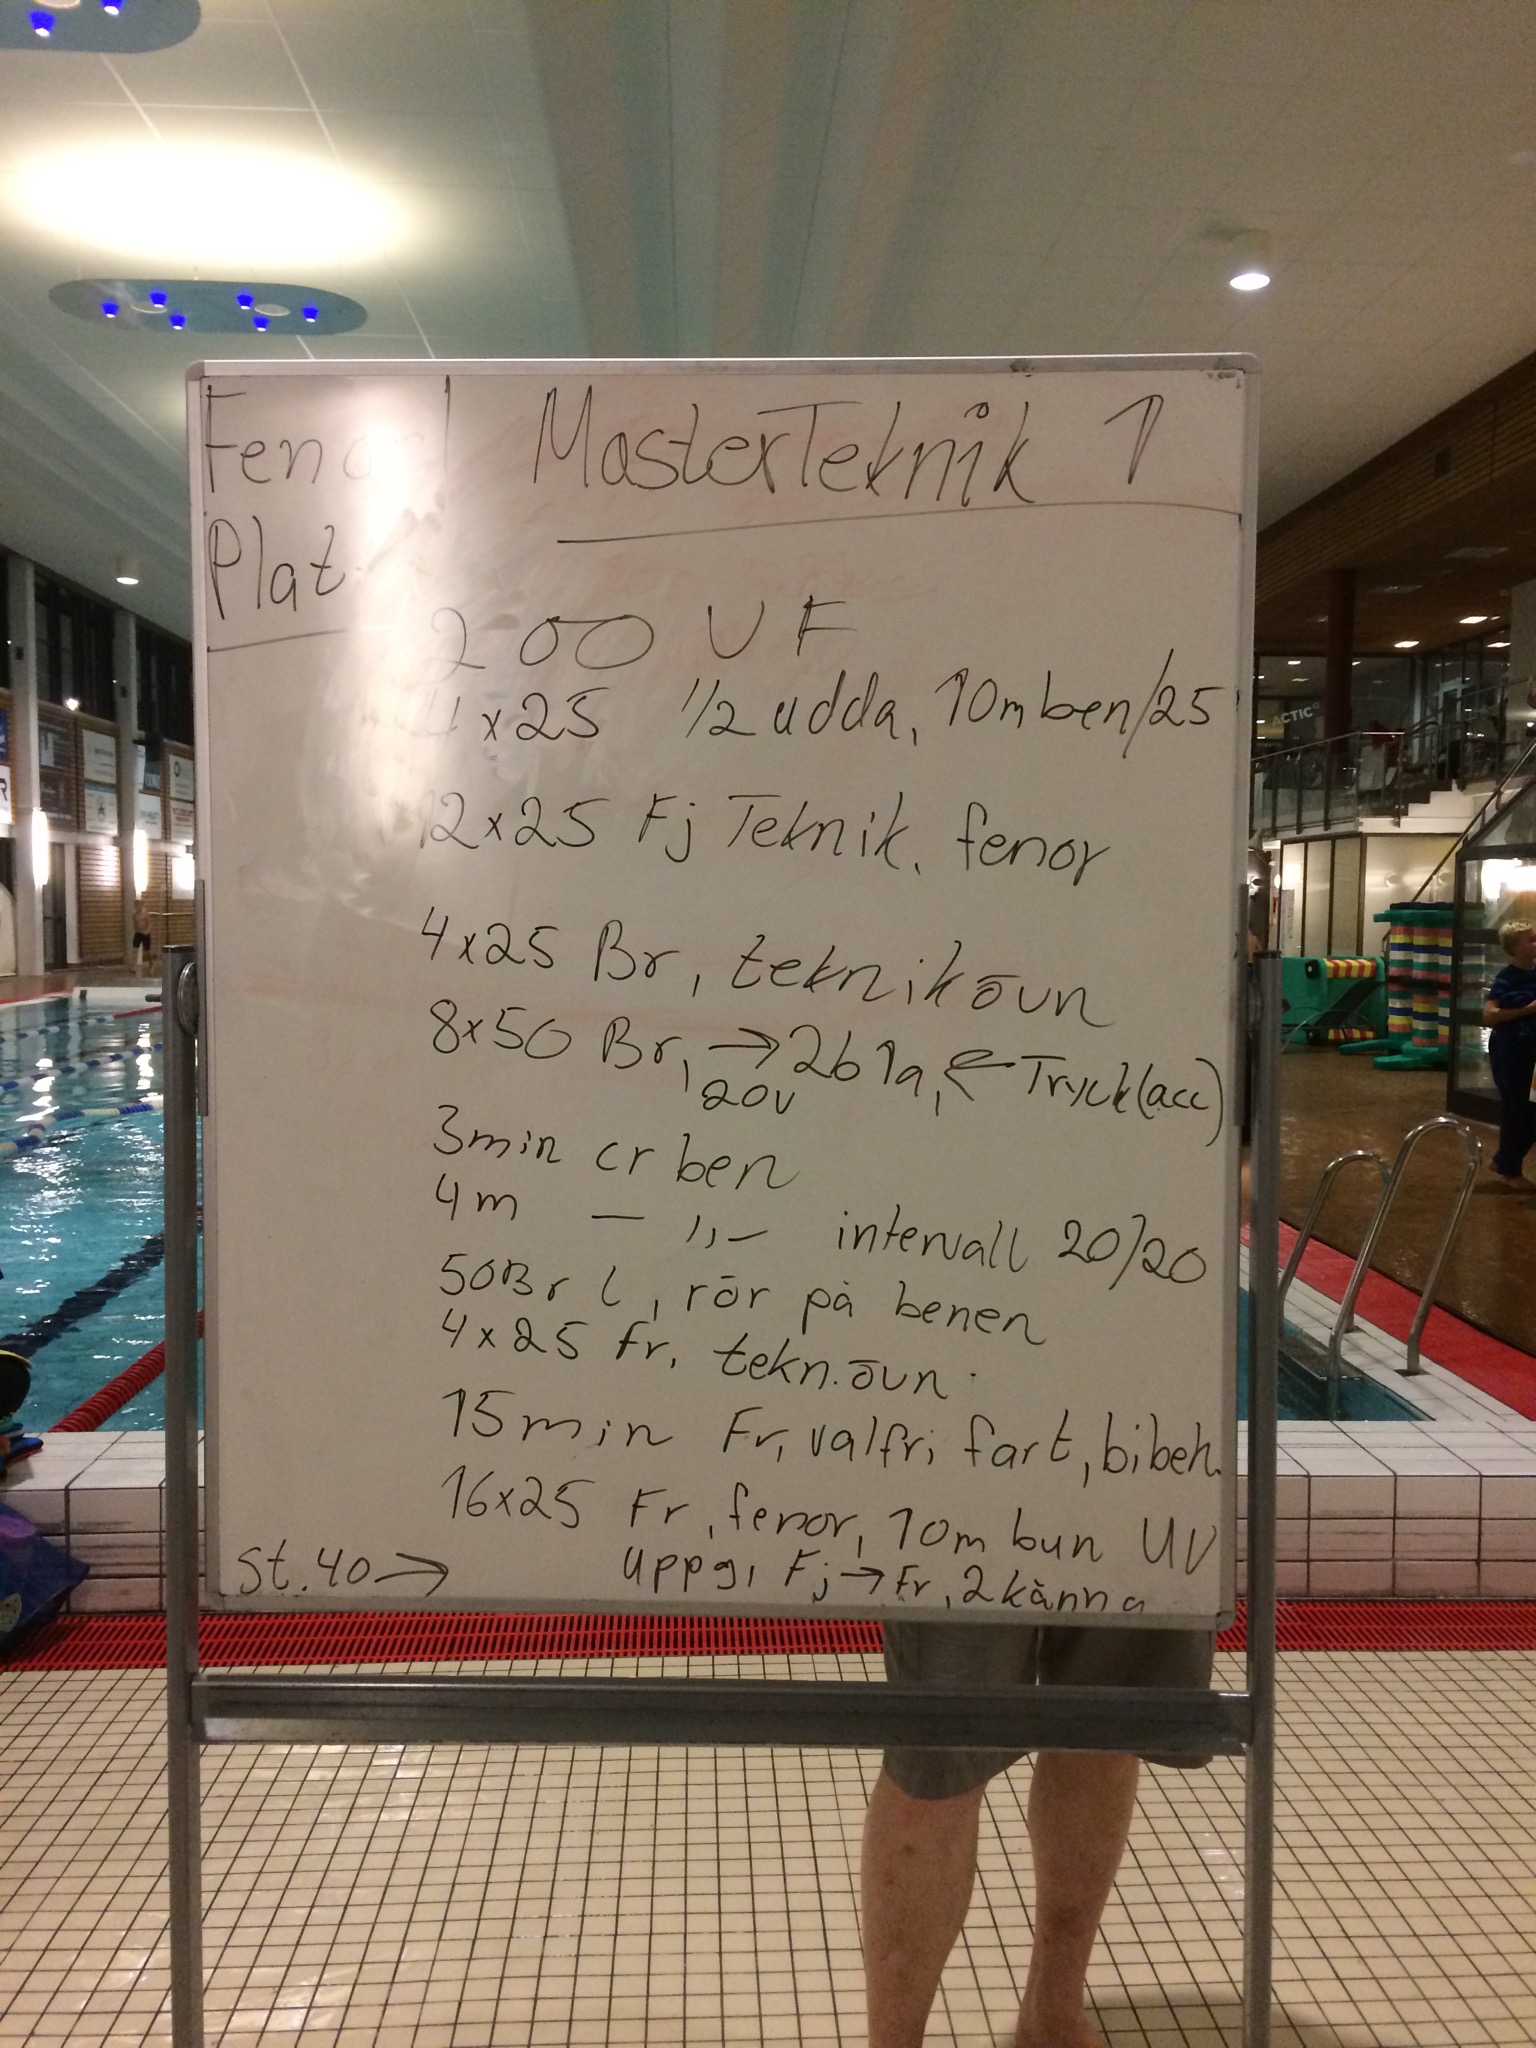 Fenor! MasterTeknik 1
Plat
200 VF
4x25 1/2 udda, 10m ben/25
12x25 Fj Teknik. fenor
4x25 Br, teknikövn
8x50 Br, → 2b 1a, ← Tryck (acc)
20v
3min cr ben
4m — ,,- intervall 20/20
50Br l, rör på benen
4x25 Fr, tekn.övn.
15min Fr, valfri fart, bibeh.
16x25 Fr, fenor, 10m bun UV
St.40 → uppg, Fj→Fr, 2 känna
ACTIC